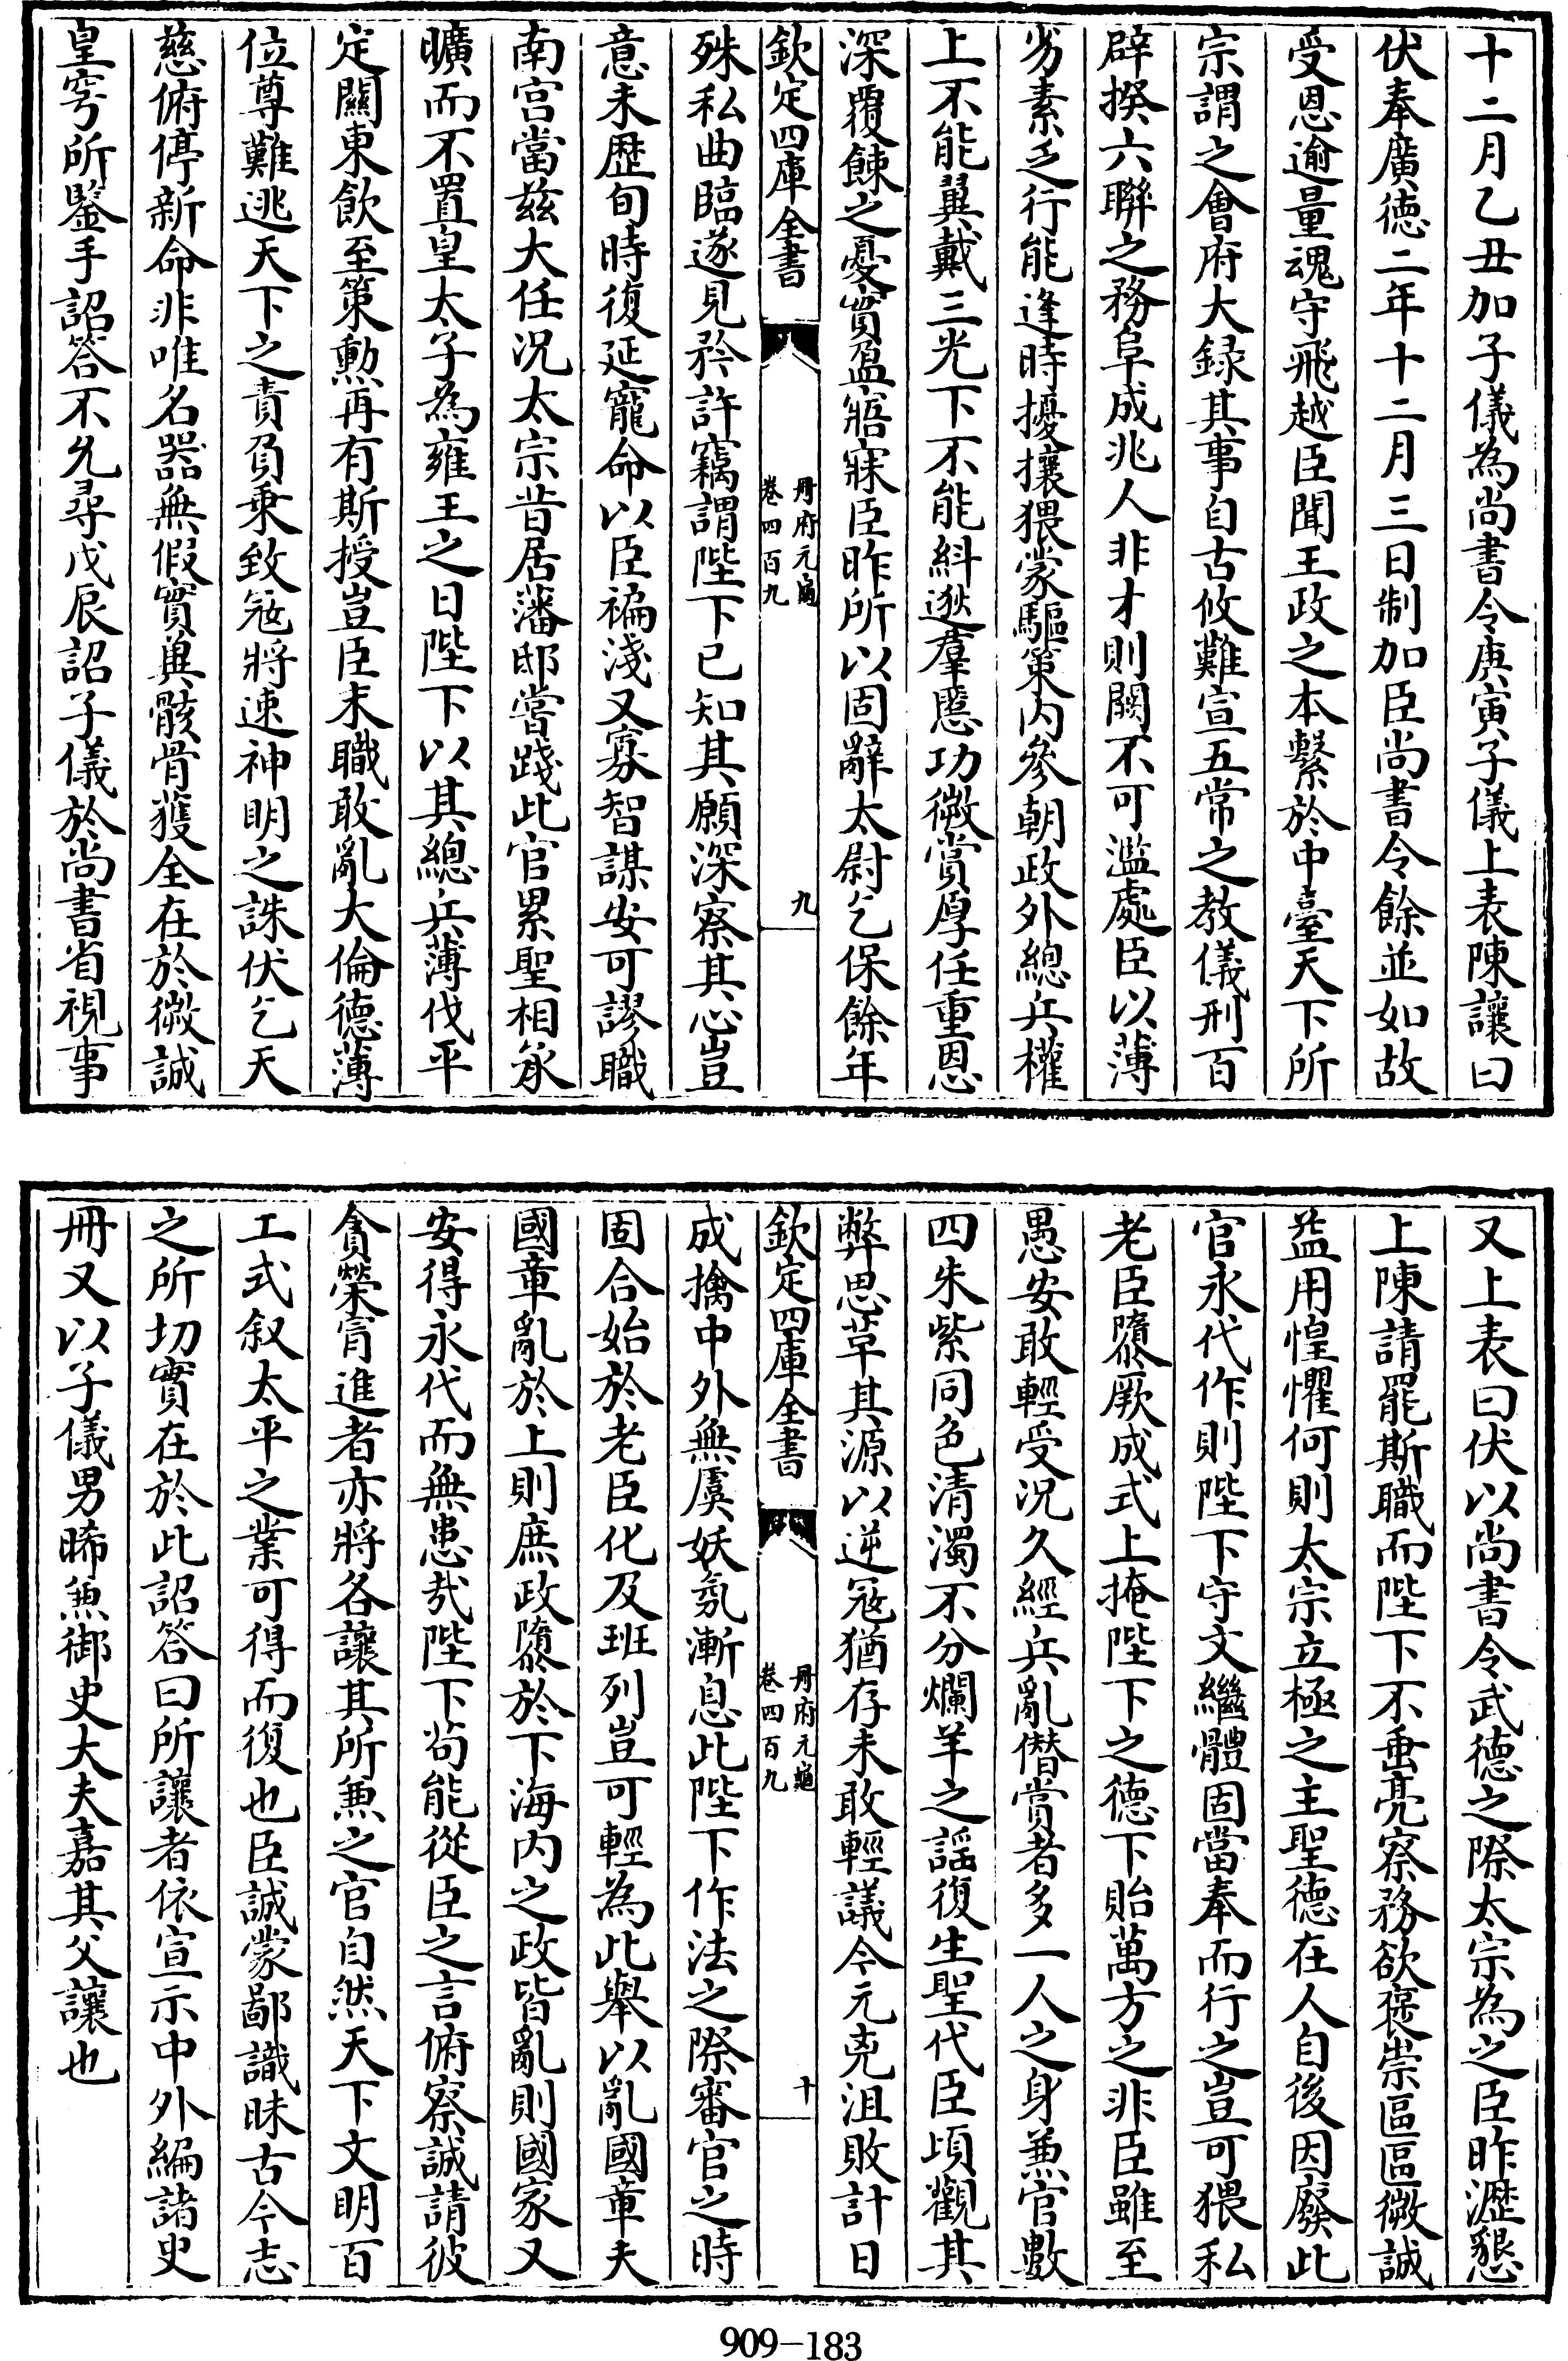 十二月乙丑加子儀為尚書令庚寅子儀上表陳讓曰
伏奉廣徳二年十二月三日制加臣尚書令餘並如故
受恩逾量魂守飛越臣聞王政之本繫於中臺天下所
宗謂之會府大録其事自古攸難宣五常之教儀刑百
辟揆六聯之務阜成兆人非才則闕不可濫處臣以薄
劣素乏行能逢時擾攘猥蒙驅策内參朝政外總兵權
上不能翼戴三光下不能糾逖羣慝功微賞厚任重恩
深覆餗之憂實盈寤寐臣昨所以固辭太尉乞保餘年
欽定四庫全書
冊府元龜
卷四百九
九
殊私曲臨遂見矜許竊謂陛下已知其願深察其心豈
意未歴旬時復延寵命以臣褊淺又寡智謀安可謬職
南宫當兹大任況太宗昔居藩邸嘗踐此官累聖相承
曠而不置皇太子為雍王之日陛下以其總兵薄伐平
定關東飲至策勲再有斯授豈臣末職敢亂大倫徳薄
位尊難逃天下之責負乗致冦將速神明之誅伏乞天
慈俯停新命非唯名器無假實與骸骨獲全在於微誠
皇穹所鑒手詔答不允尋戊辰詔子儀於尚書省視事
又上表曰伏以尚書令武徳之際太宗為之臣昨瀝懇
上陳請罷斯職而陛下不垂亮察務欲褒崇區區微誠
益用惶懼何則太宗立極之主聖徳在人自後因廢此
官永代作則陛下守文繼體固當奉而行之豈可猥私
老臣隳厥成式上掩陛下之徳下貽萬方之非臣雖至
愚安敢輕受況久經兵亂僭賞者多一人之身兼官數
四朱紫同色清濁不分爛羊之謡復生聖代臣頃觀其
弊思革其源以逆冦猶存未敢輕議今元兇沮敗計日
欽定四庫全書
冊府元龜
卷四百九
十
成擒中外無虞妖氛漸息此陛下作法之際審官之時
固合始於老臣化及班列豈可輕為此舉以亂國章夫
國章亂於上則庶政隳於下海内之政皆亂則國家又
安得永代而無患哉陛下茍能從臣之言俯察誠請彼
貪榮冐進者亦將各讓其所兼之官自然天下文明百
工式叙太平之業可得而復也臣誠蒙鄙識昧古今志
之所切實在於此詔答曰所讓者依宣示中外編諸史
冊又以子儀男晞兼御史大夫嘉其父讓也
909-183